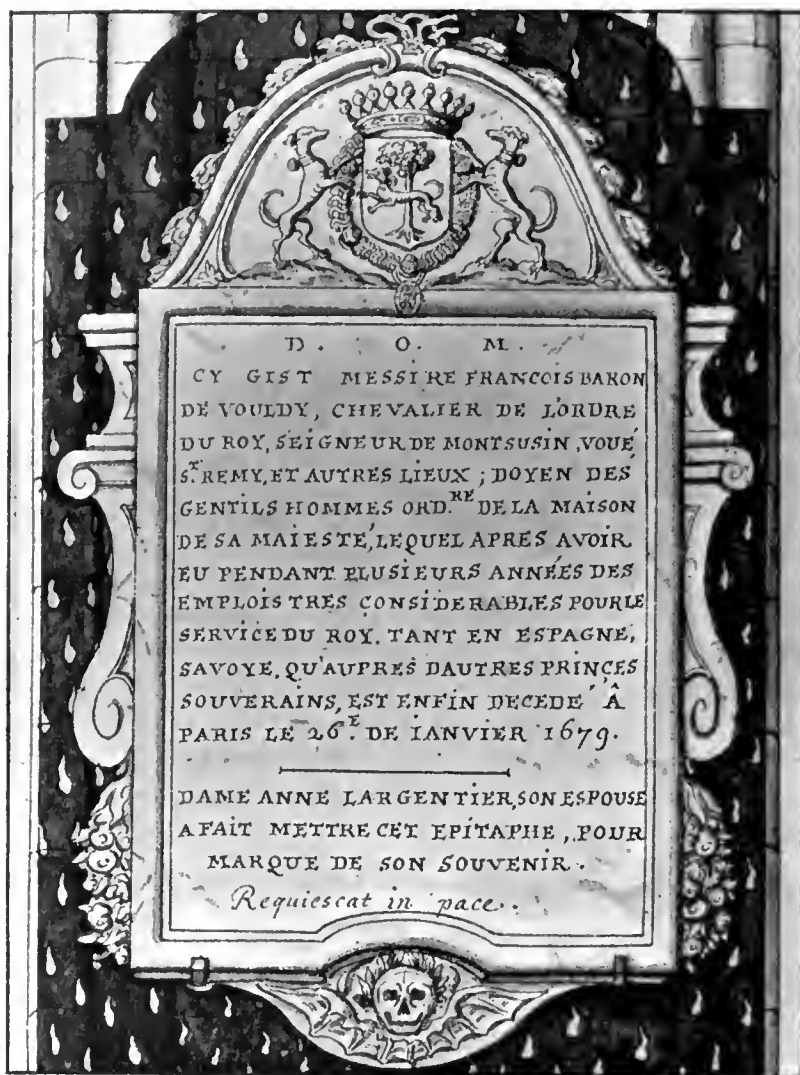 D . O . M .
CY GIST MESSIRE FRANCOIS BARON
DE VOULDY, CHEVALIER DE L'ORDRE
DU ROY, SEIGNEUR DE MONTSUSIN, VOUÉ
S.T REMY, ET AUTRES LIEUX ; DOYEN DES
GENTILS HOMMES ORD.RE DE LA MAISON
DE SA MAIESTÉ, LEQUEL APRES AVOIR
EU PENDANT PLUSIEURS ANNÉES DES
EMPLOIS TRES CONSIDERABLES POUR LE
SERVICE DU ROY. TANT EN ESPAGNE,
SAVOYE, QU'AUPRES DAUTRES PRINCES
SOUVERAINS, EST ENFIN DECEDÉ Â
PARIS LE 26.E DE IANVIER 1679.
DAME ANNE LARGENTIER, SON ESPOUSE
A FAIT METTRE CET EPITAPHE, POUR
MARQUE DE SON SOUVENIR.
Requiescat in pace.